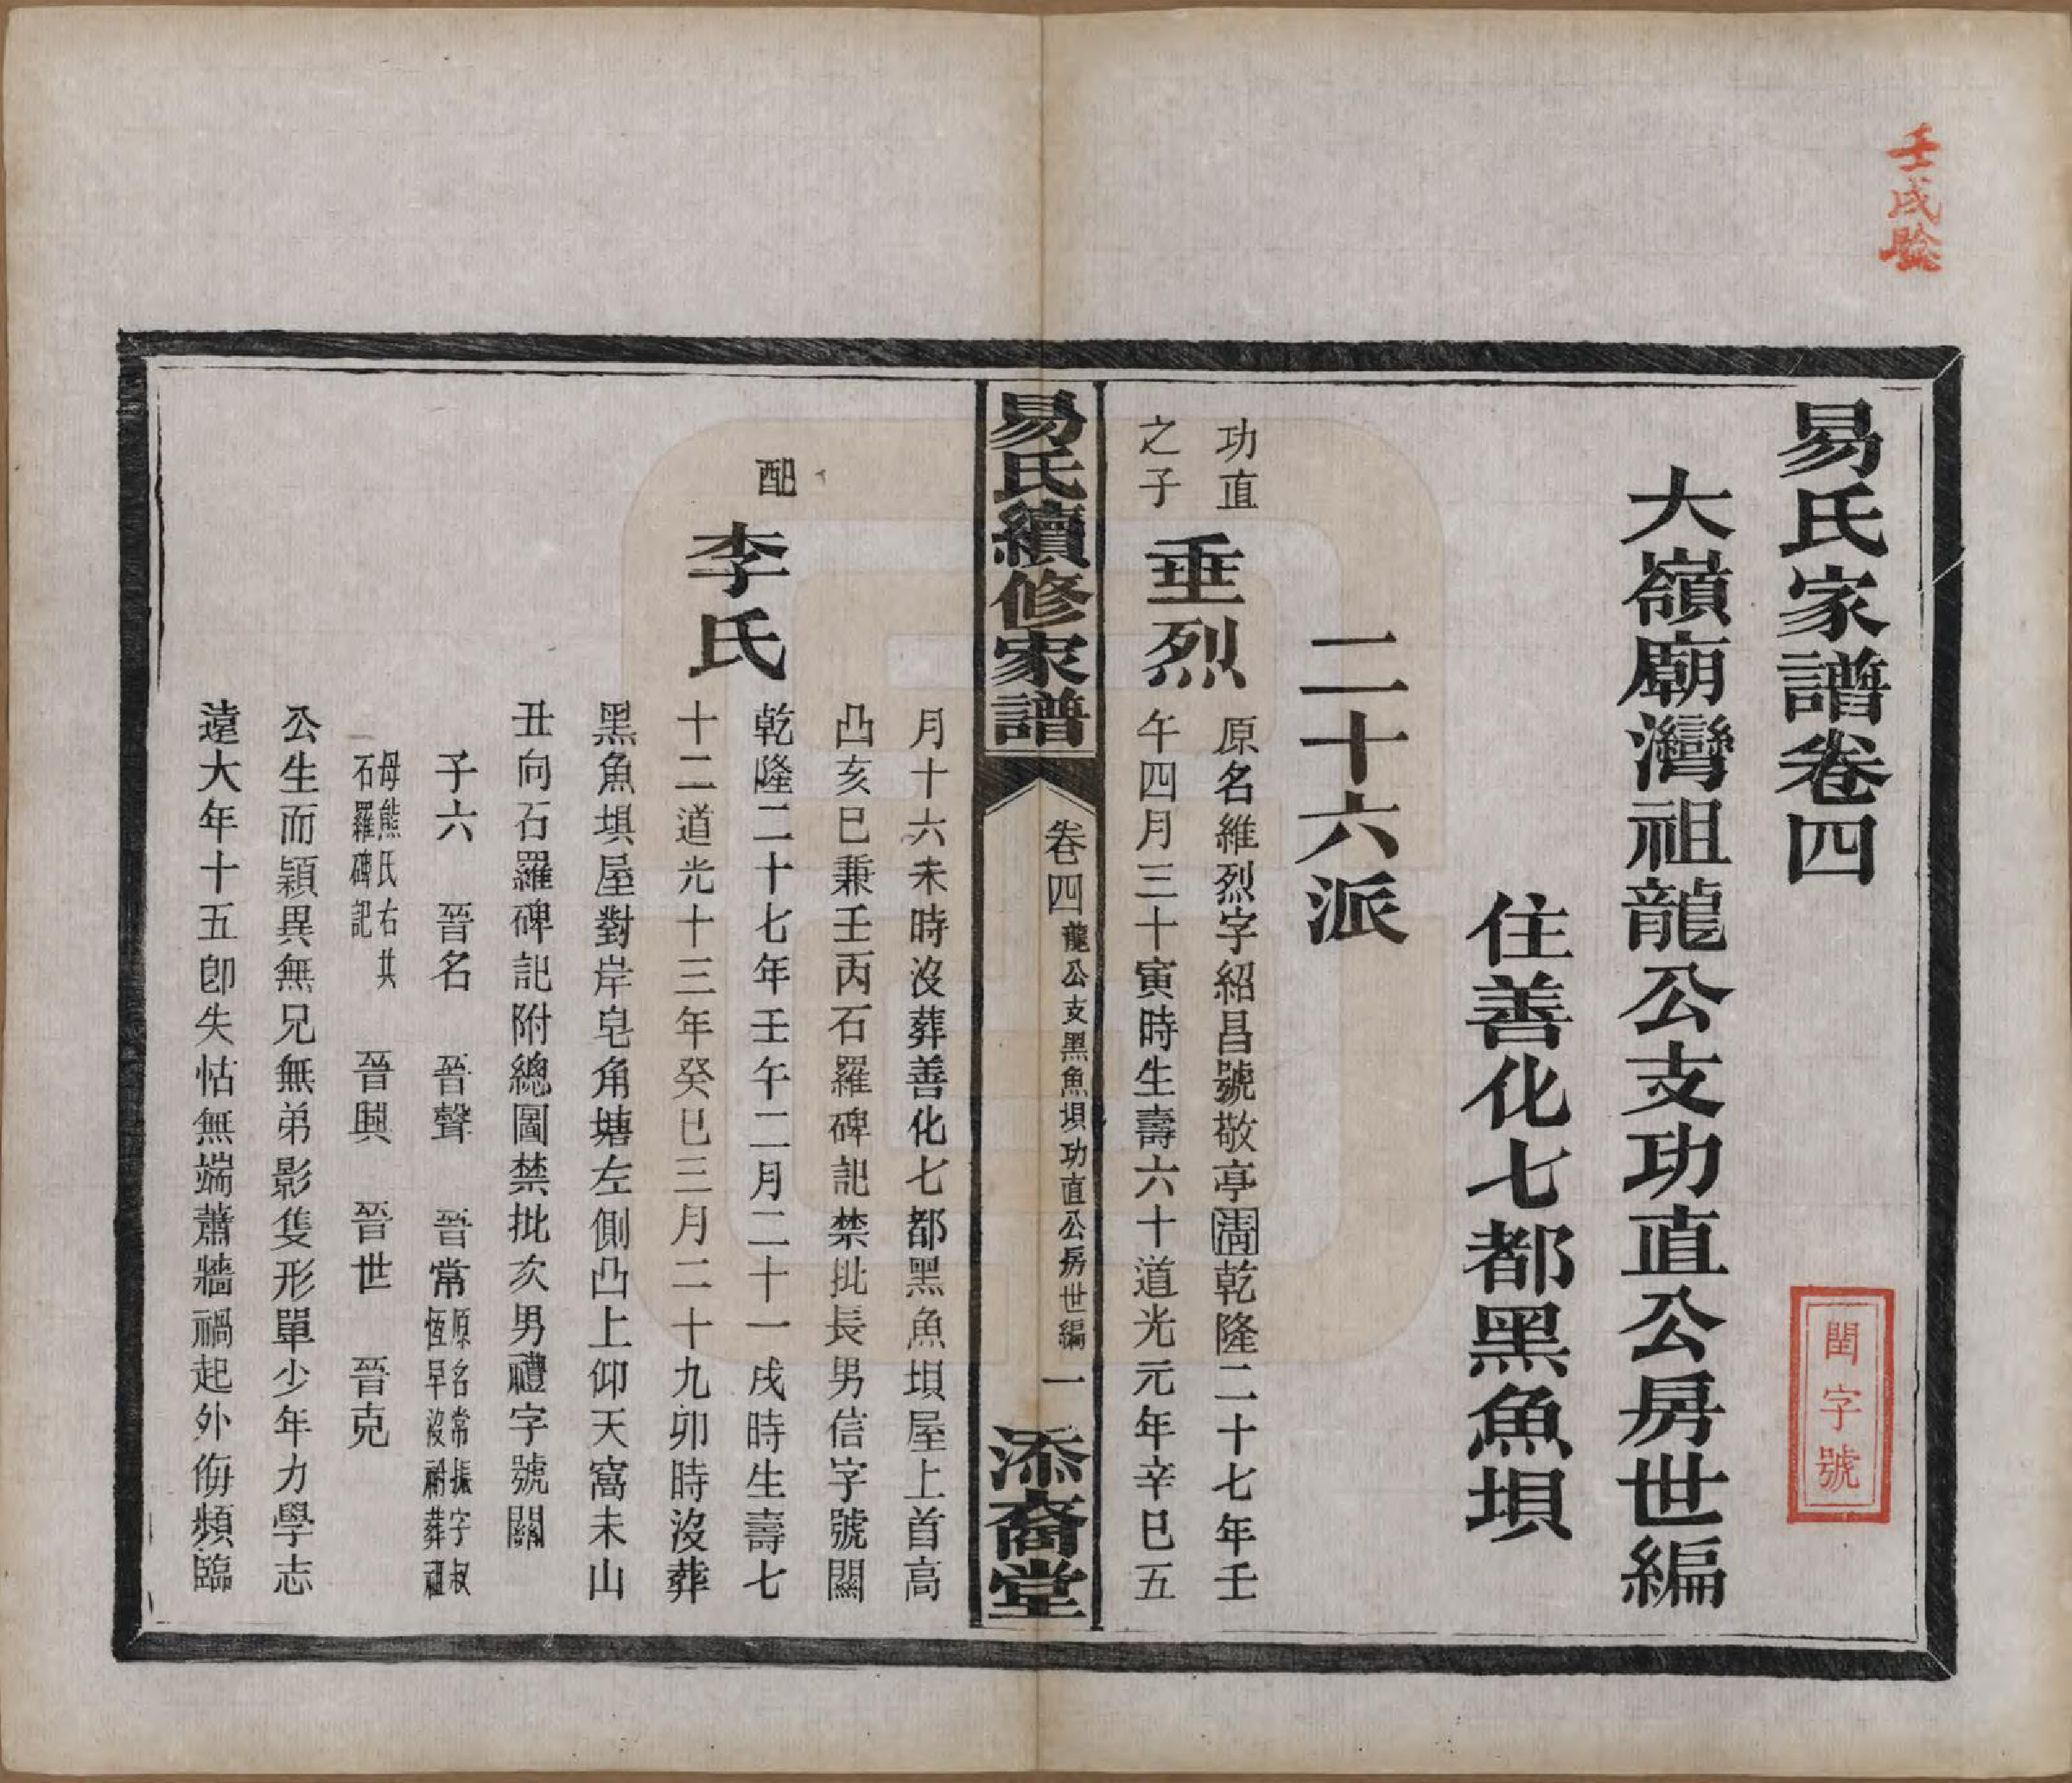 壬戌驗
易氏家譜卷四
閏字號
大嶺廟灣祖龍公支功直公房世編
住善化七都黑魚垻
二十六派
功直
之子
垂烈
原名維烈字紹昌號敬亭乾隆二十七年壬
午四月三十寅時生壽六十道光元年辛巳五
易氏續修家譜
卷四
龍公支黑魚垻功直公房世編
一
添裔堂
月十六未時沒葬善化七都黑魚垻屋上首高
凸亥巳兼壬丙石羅碑記禁批長男信字號關
配
李氏
乾隆二十七年壬午二月二十一戌時生壽七
十二道光十三年癸巳三月二十九卯時沒葬
黑魚垻屋對岸皂角塘左側凸上仰天窩未山
丑向石羅碑記附總圖禁批次男禮字號關
子六 晉名 晉聲 晉常
原名常振字叔
恆早沒祔葬祖
母熊氏右其
石羅碑記
晉興 晉世 晉克
公生而穎異無兄無弟影隻形單少年力學志
遠大年十五卽失怙無端蕭牆禍起外侮頻臨